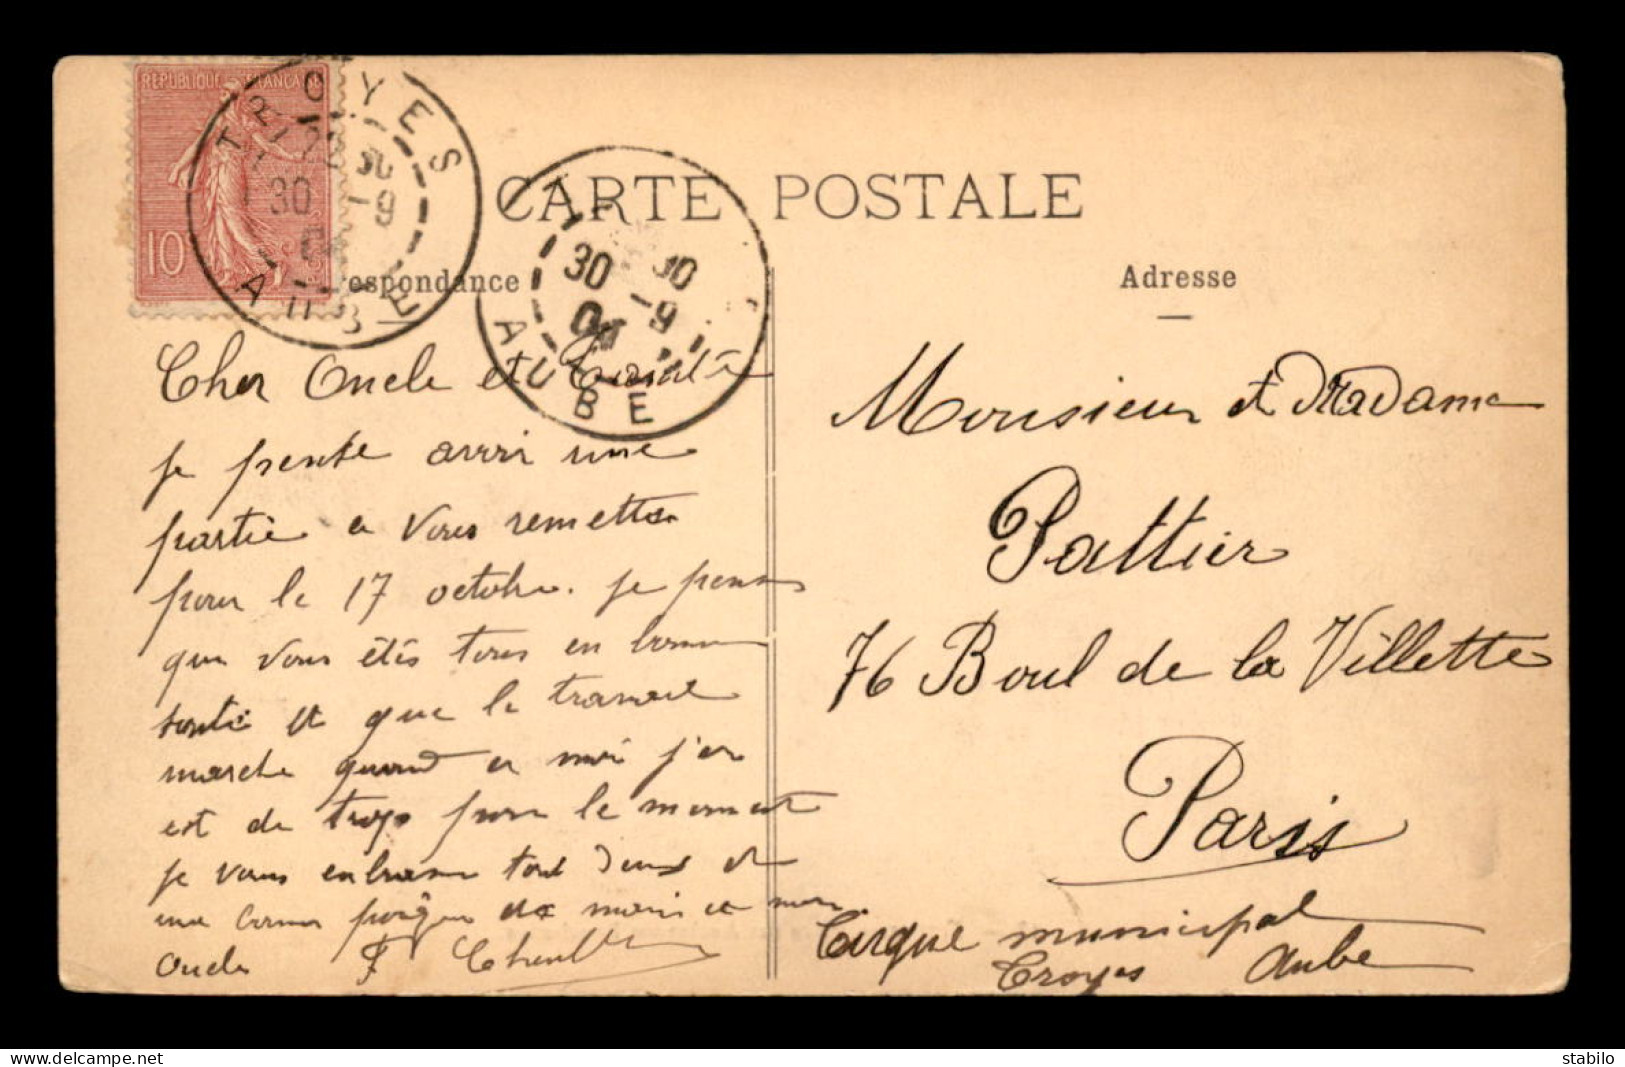 REPUBLIQUE FRANCAISE
10
TROYES
30 -9
AUBE
CARTE POSTALE
30 -9
AUBE
respondance
Adresse
Cher Oncle et
je pense avoir une
partie a vous remettre
pour le 17 octobre. je pense
que vous étés tous en bonne
santé et que le travail
marche quand a moi j'en
est de trops pour le moment
je vous embrasse tout deux et
une bonne poignee de main a mon
Oncle F
Monsieur et Madame
Pattier
76 Boul de la Villette
Paris
Cirque municipal
Troyes Aube
Delcampe.net
stabilo